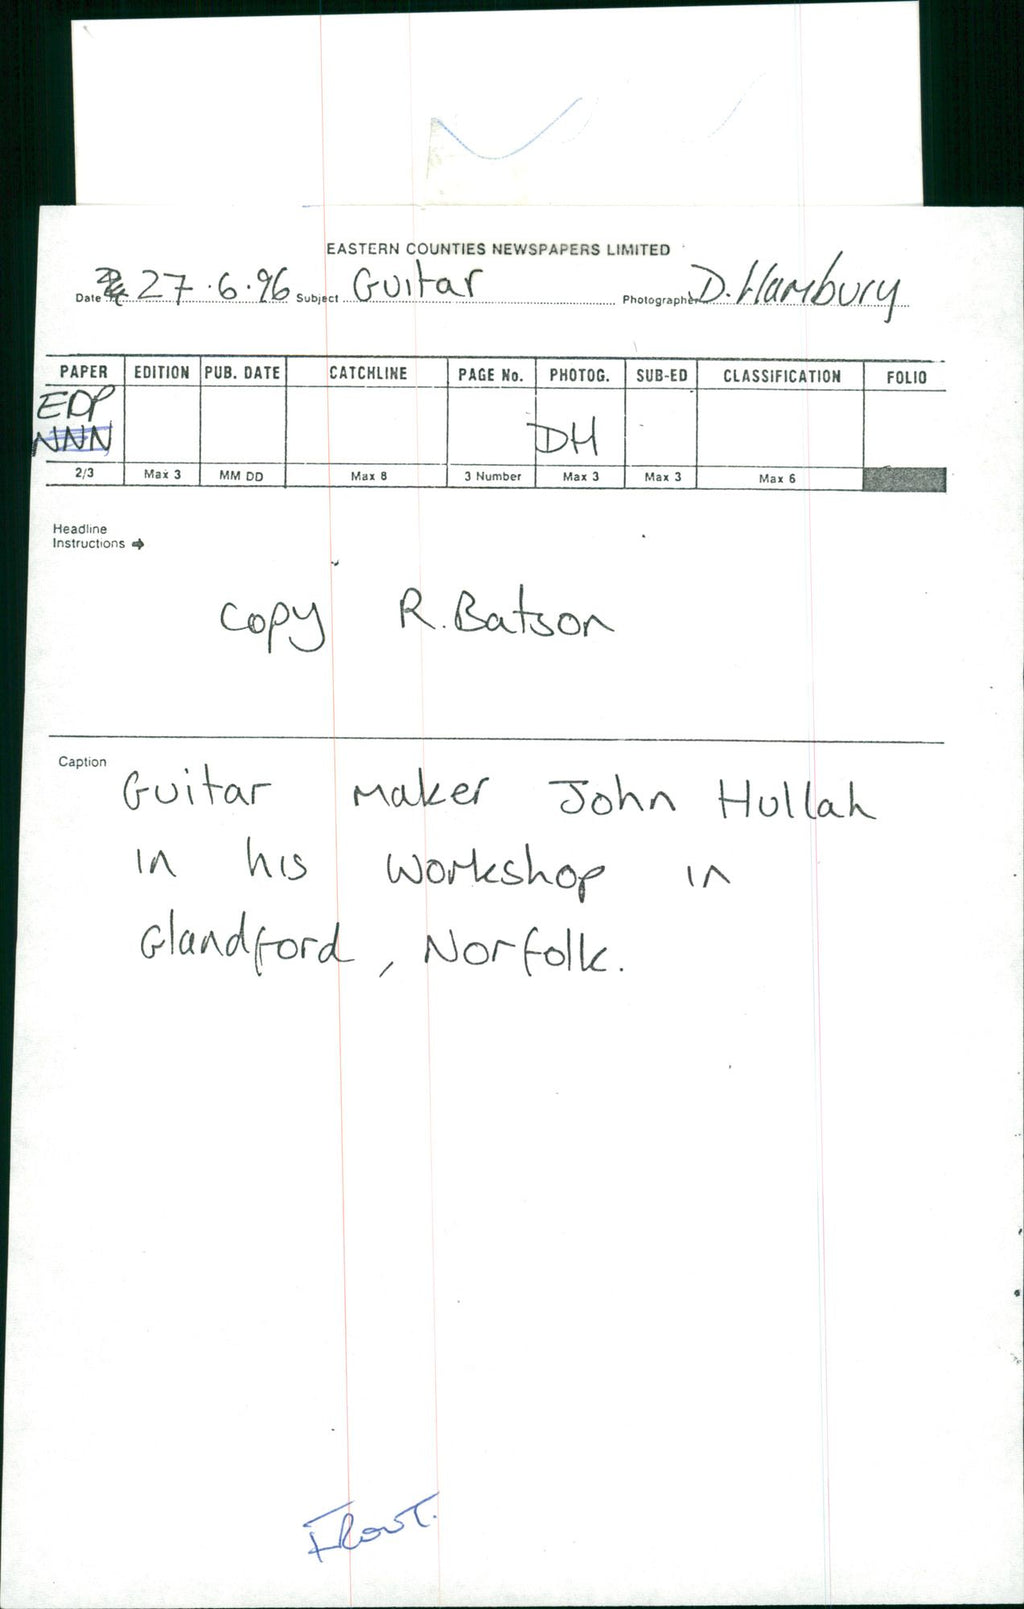 EASTERN COUNTIES NEWSPAPERS LIMITED
Date 27.6.96 Subject Guitar Photographer D. Hambury
PAPER EDITION PUB. DATE CATCHLINE PAGE No. PHOTOG. SUB-ED CLASSIFICATION FOLIO
EDP
NNN DH
2/3 Max 3 MM DD Max 8 3 Number Max 3 Max 3 Max 6
Headline
Instructions
Copy R. Batson
Caption
Guitar maker John Hullah
in his workshop in
Glandford, Norfolk.